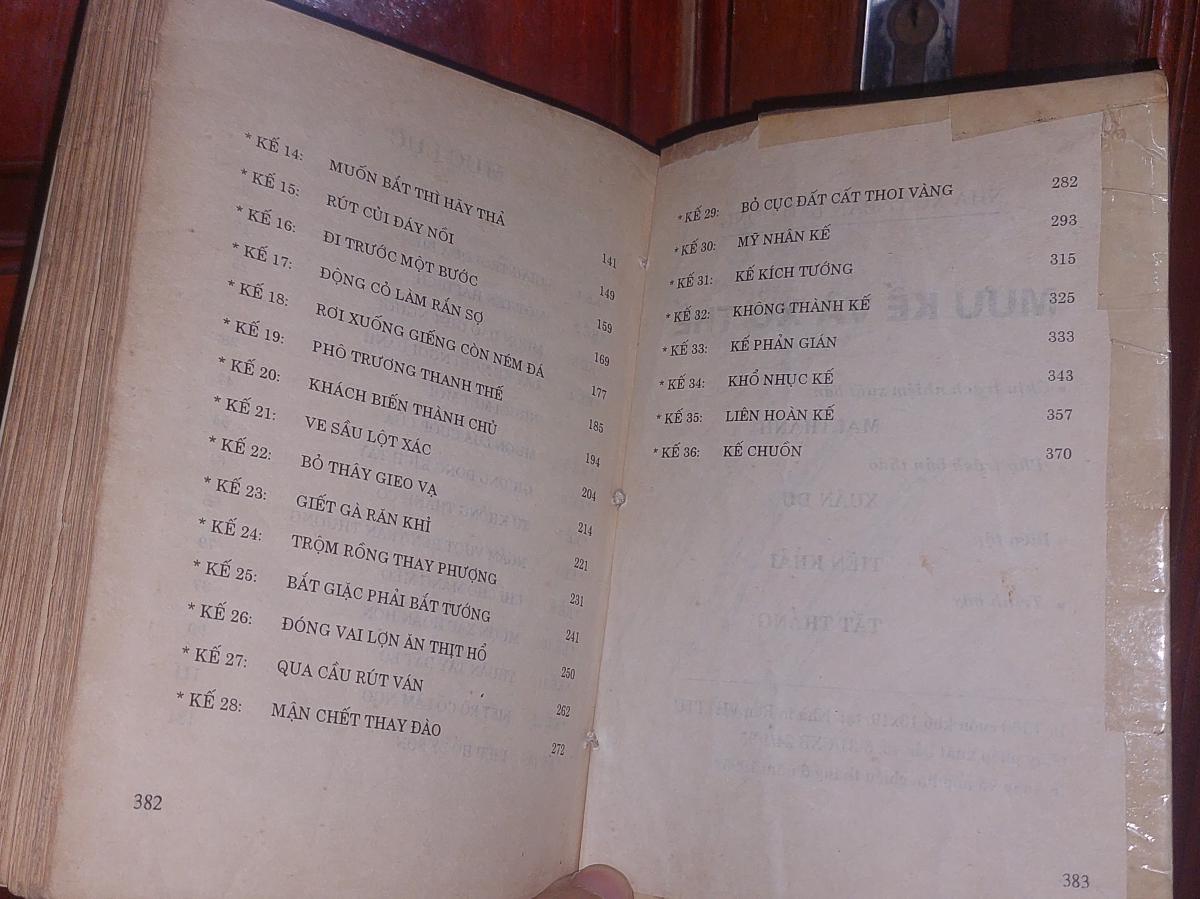 * KẾ 14: MUỐN BẮT THÌ HÃY THẢ 141
* KẾ 15: RÚT CỦI ĐÁY NỒI 149
* KẾ 16: ĐI TRƯỚC MỘT BƯỚC 159
* KẾ 17: ĐỘNG CỎ LÀM RẮN SỢ 169
* KẾ 18: RƠI XUỐNG GIẾNG CÒN NÉM ĐÁ 177
* KẾ 19: PHÔ TRƯƠNG THANH THẾ 185
* KẾ 20: KHÁCH BIẾN THÀNH CHỦ 194
* KẾ 21: VE SẦU LỘT XÁC 204
* KẾ 22: BỎ THÂY GIEO VẠ 214
* KẾ 23: GIẾT GÀ RĂN KHỈ 221
* KẾ 24: TRỘM RỒNG THAY PHƯỢNG 231
* KẾ 25: BẮT GIẶC PHẢI BẮT TƯỚNG 241
* KẾ 26: ĐÓNG VAI LỢN ĂN THỊT HỔ 250
* KẾ 27: QUA CẦU RÚT VÁN 262
* KẾ 28: MẬN CHẾT THAY ĐÀO 272
382
* KẾ 29: BỎ CỤC ĐẤT CẤT THOI VÀNG 282
* KẾ 30: MỸ NHÂN KẾ 293
* KẾ 31: KẾ KÍCH TƯỚNG 315
* KẾ 32: KHÔNG THÀNH KẾ 325
* KẾ 33: KẾ PHẢN GIÁN 333
* KẾ 34: KHỔ NHỤC KẾ 343
* KẾ 35: LIÊN HOÀN KẾ 357
* KẾ 36: KẾ CHUỒN 370
383